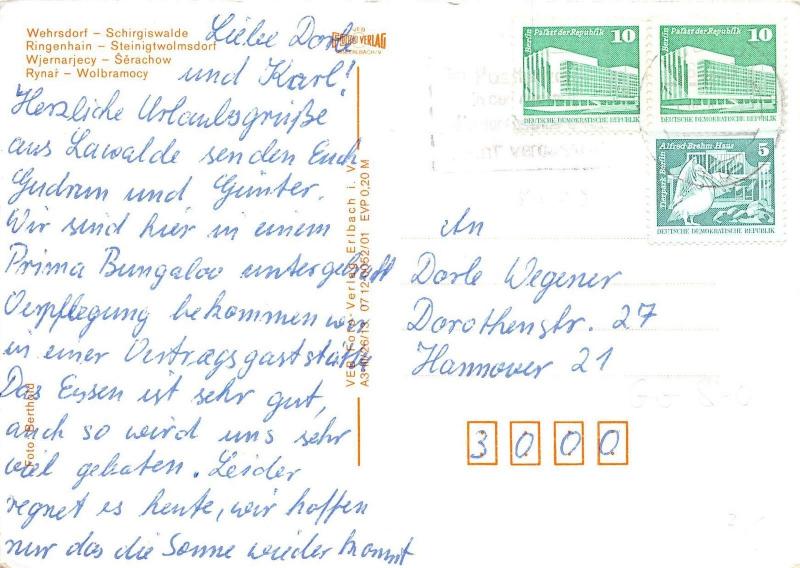 Wehrsdorf – Schirgiswalde
Ringenhain – Steinigtwolmsdorf
Wjernarjecy – Šěrachow
Rynaŕ – Wolbramocy
Liebe Dorle
und Karl!
Herzliche Urlaubsgrüße
aus Lawalde senden Euch
Gudrun und Günter.
Wir sind hier in einem
Prima Bungaloo untergebracht
Verpflegung bekommen wir
in einer Vertragsgaststätte
Das Essen ist sehr gut,
auch so wird uns sehr
viel geboten. Leider
regnet es heute, wir hoffen
nur das die Sonne wieder kommt
Foto: Berthold
VERLAG
VEB Foto-Verlag Erlbach i. V.
EVP 0,20 M
Berlin Palast der Republik 10
DEUTSCHE DEMOKRATISCHE REPUBLIK
Berlin Palast der Republik 10
DEUTSCHE DEMOKRATISCHE REPUBLIK
Tierpark Berlin Alfred-Brehm-Haus 5
DEUTSCHE DEMOKRATISCHE REPUBLIK
An
Dorle Wegener
Dorothenstr. 27
Hannover 21
3000